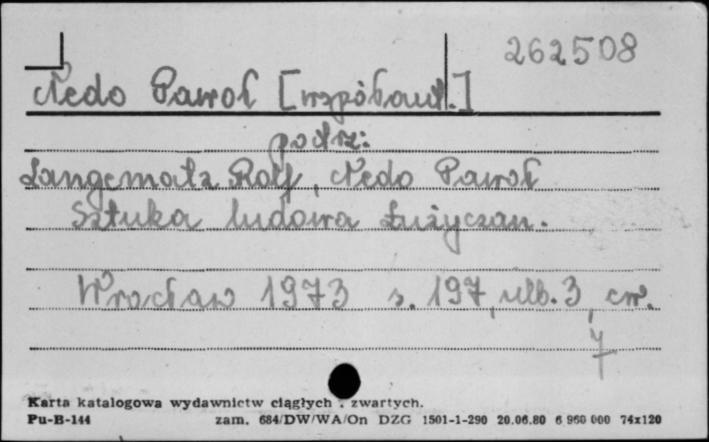 262508
Nedo Paweł [współaut.]
patrz:
Langematz Rolf, Nedo Paweł
Sztuka ludowa Łużyczan.
Wrocław 1973 s. 197, nlb. 3,
Karta katalogowa wydawnictw ciągłych , zwartych.
Pu-B-144 zam. 684/DW/WA/On DZG 1501-1-290 20.06.80 6 960 000 74x120